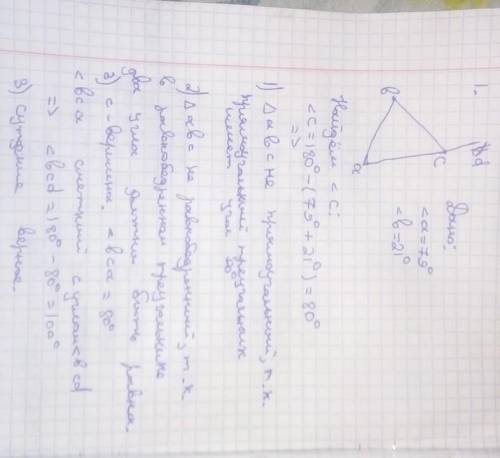 1.
b
a
c
d
Дано:
<a=79°
<b=21°
Найдём <c:
<c=180°-(79°+21°)=80°
=>
1) Δabc не прямоугольный, т.к.
прямоугольный треугольник
имеет угол 90°
2) Δabc не равнобедренный, т.к.
в равнобедренном треугольнике
два угла должны быть равны.
3) c-вершина. <bca=80°
<bca смежный с углом <bcd
=> <bcd=180°-80°=100°
3) суждение верное.